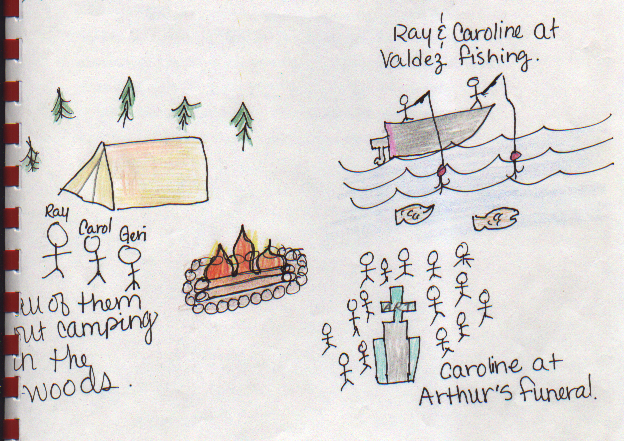 Ray & Caroline at
Valdez fishing.
Ray
Carol
Geri
of them
camping
in the
woods.
Caroline at
Arthur's funeral.